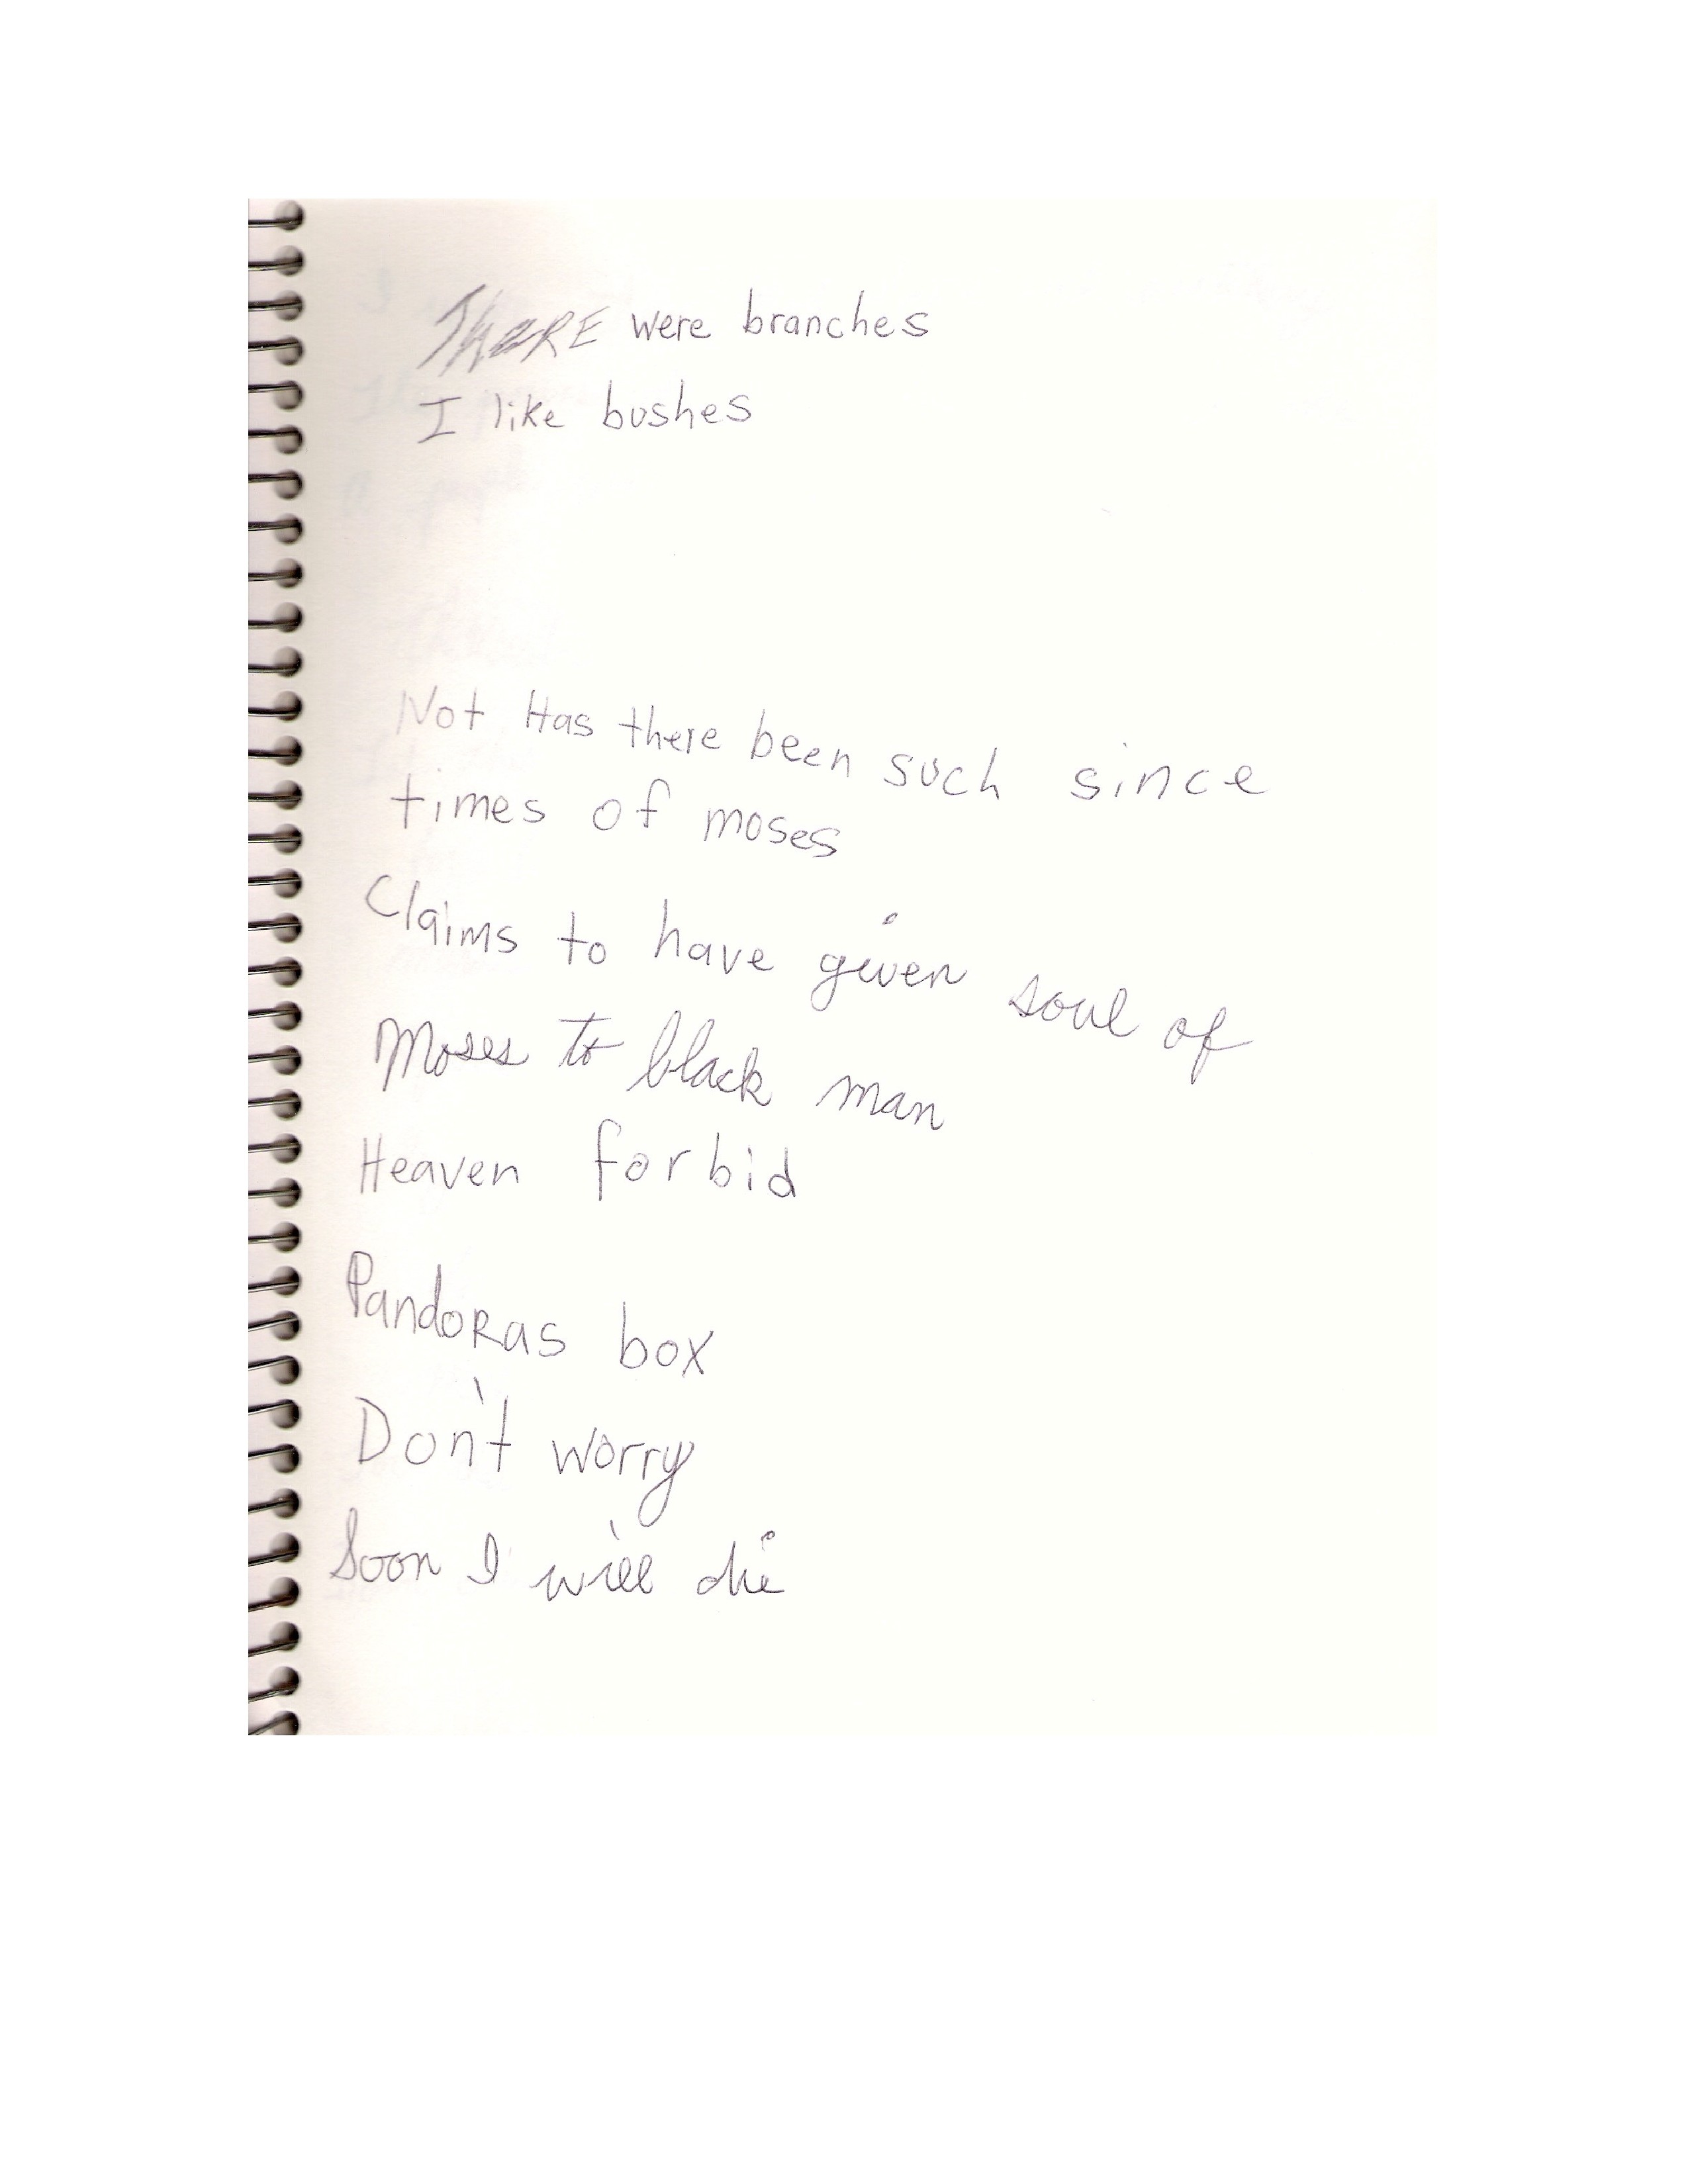 THERE were branches
I like bushes
Not Has there been such since
times of moses
Claims to have given soul of
Moses to black man
Heaven forbid
PandoRas box
Don't worry
Soon I will die